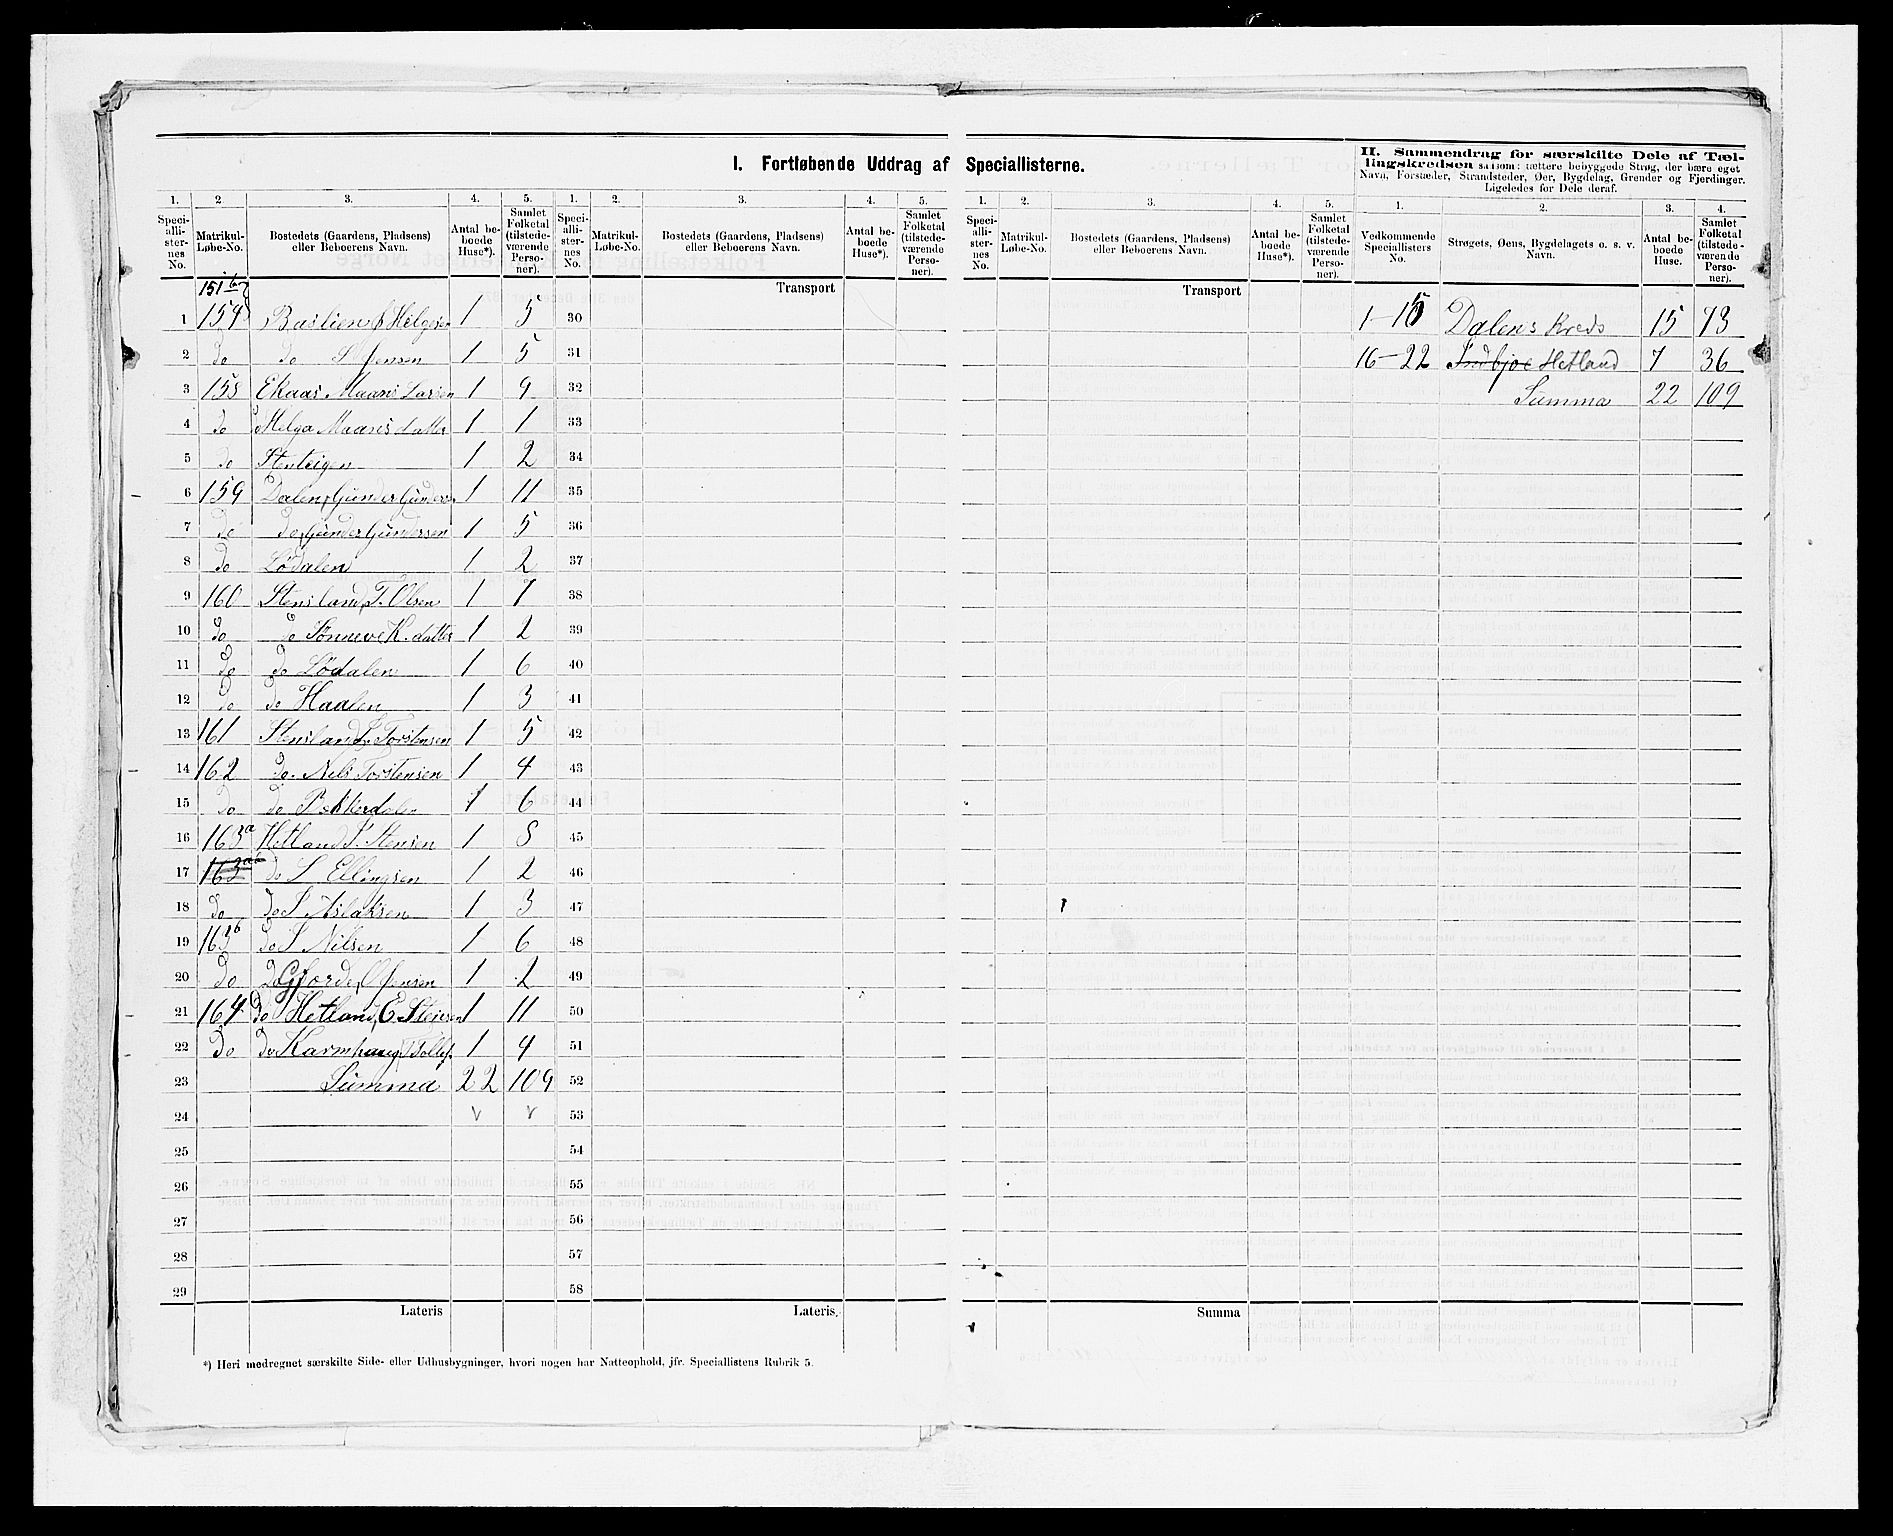 I. Fortløbende Uddrag af Speciallisterne.
II. Sammendrag for særskilte Dele af Tællingskredsen saasom: tættere bebyggede Strøg, der bære eget Navn, Forstæder, Strandsteder, Øer, Bygdelag, Grender og Fjerdinger. Ligeledes for Dele deraf.
1. 2 3. 4. 5. 1. 2. 3. 4. 5. 1. 2. 3. 4. 5. 1. 2. 3. 4.
Speciallisternes No. Matrikul-Løbe-No. Bostedets (Gaardens, Pladsens) eller Beboerens Navn. Antal beboede Huse*). Samlet Folketal (tilstedeværende Personer).
Speciallisternes No. Matrikul-Løbe-No. Bostedets (Gaardens, Pladsens) eller Beboerens Navn. Antal beboede Huse*). Samlet Folketal (tilstedeværende Personer).
Speciallisternes No. Matrikul-Løbe-No. Bostedets (Gaardens, Pladsens) eller Beboerens Navn. Antal beboede Huse*). Samlet Folketal (tilstedeværende Personer).
Vedkommende Speciallisters No. Strøgets, Øens, Bygdelagets o. s. v. Navn. Antal beboede Huse. Samlet Folketal (tilstedeværende Personer).
Transport Transport
1 Helgesen 1 5 30 Dalens Kreds 15 73
2 do do Jensen 1 5 31 16-22 Hetland 7 36
3 158 Ekaas Maans Larsen 1 9 32 Summa 22 109
4 do Helga Maansdatter 1 1 33
5 do Stenteigen 1 2 34
6 159 Dalen, Gunder 1 11 35
7 do do Gunder Gundersen 1 5 36
8 do Lødalen 1 2 37
9 160 Stensland, T. Olsen 1 7 38
10 do do Sønneve K. datter 1 2 39
11 do do Lødalen 1 6 40
12 do do Haalen 1 3 41
13 161 Stensland Torstensen 1 5 42
14 162 do. Nels Torstensen 1 4 43
15 do do 1 6 44
16 163a Hetland Stensen 1 8 45
17 do S Ellingsen 1 2 46
18 do do S Aslaksen 1 3 47
19 163b do S Nilsen 1 6 48
20 do do Jensen 1 2 49
21 164 do Hetland, E. 1 11 50
22 do do 1 4 51
23 Summa 22 109 52
24 v v 53
25 54
26 55
27 56
28 57
29 58
Lateris Lateris. Summa
*) Heri medregnet særskilte Side- eller Udhusbygninger, hvori nogen har Natteophold, jfr. Speciallistens Rubrik 5.